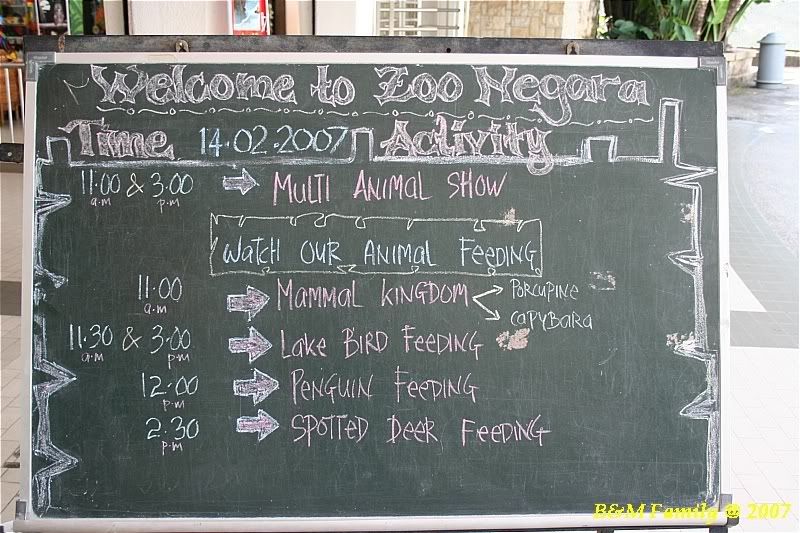 Welcome to Zoo Negara
Time 14.02.2007 Activity
11.00 & 3.00 MULTI ANIMAL SHOW
a.m p.m
WATCH OUR ANIMAL FEEDING
11.00 MAMMAL KINGDOM PORCUPINE
a.m CAPYBARA
11.30 & 3.00 LAKE BIRD FEEDING
a.m p.m
12.00 PENGUIN FEEDING
p.m
2.30 SPOTTED DEER FEEDING
p.m
B&M Family @ 2007